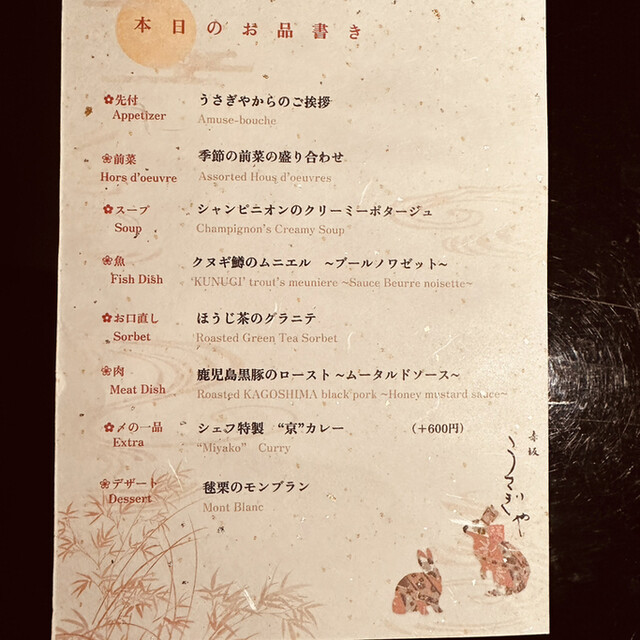 本日のお品書き
✿先付 うさぎやからのご挨拶
Appetizer Amuse-bouche
❀前菜 季節の前菜の盛り合わせ
Hors d'oeuvre Assorted Hous d'oeuvres
✿スープ シャンピニオンのクリーミーポタージュ
Soup Champignon's Creamy Soup
❀魚 クヌギ鱒のムニエル ~ブールノワゼット~
Fish Dish 'KUNUGI' trout's meuniere ~Sauce Beurre noisette~
✿お口直し ほうじ茶のグラニテ
Sorbet Roasted Green Tea Sorbet
❀肉 鹿児島黒豚のロースト ~ムータルドソース~
Meat Dish Roasted KAGOSHIMA black pork ~Honey mustard sauce~
✿〆の一品 シェフ特製 “京”カレー (+600円)
Extra “Miyako” Curry
❀デザート 毬栗のモンブラン
Dessert Mont Blanc
赤坂
うさぎや